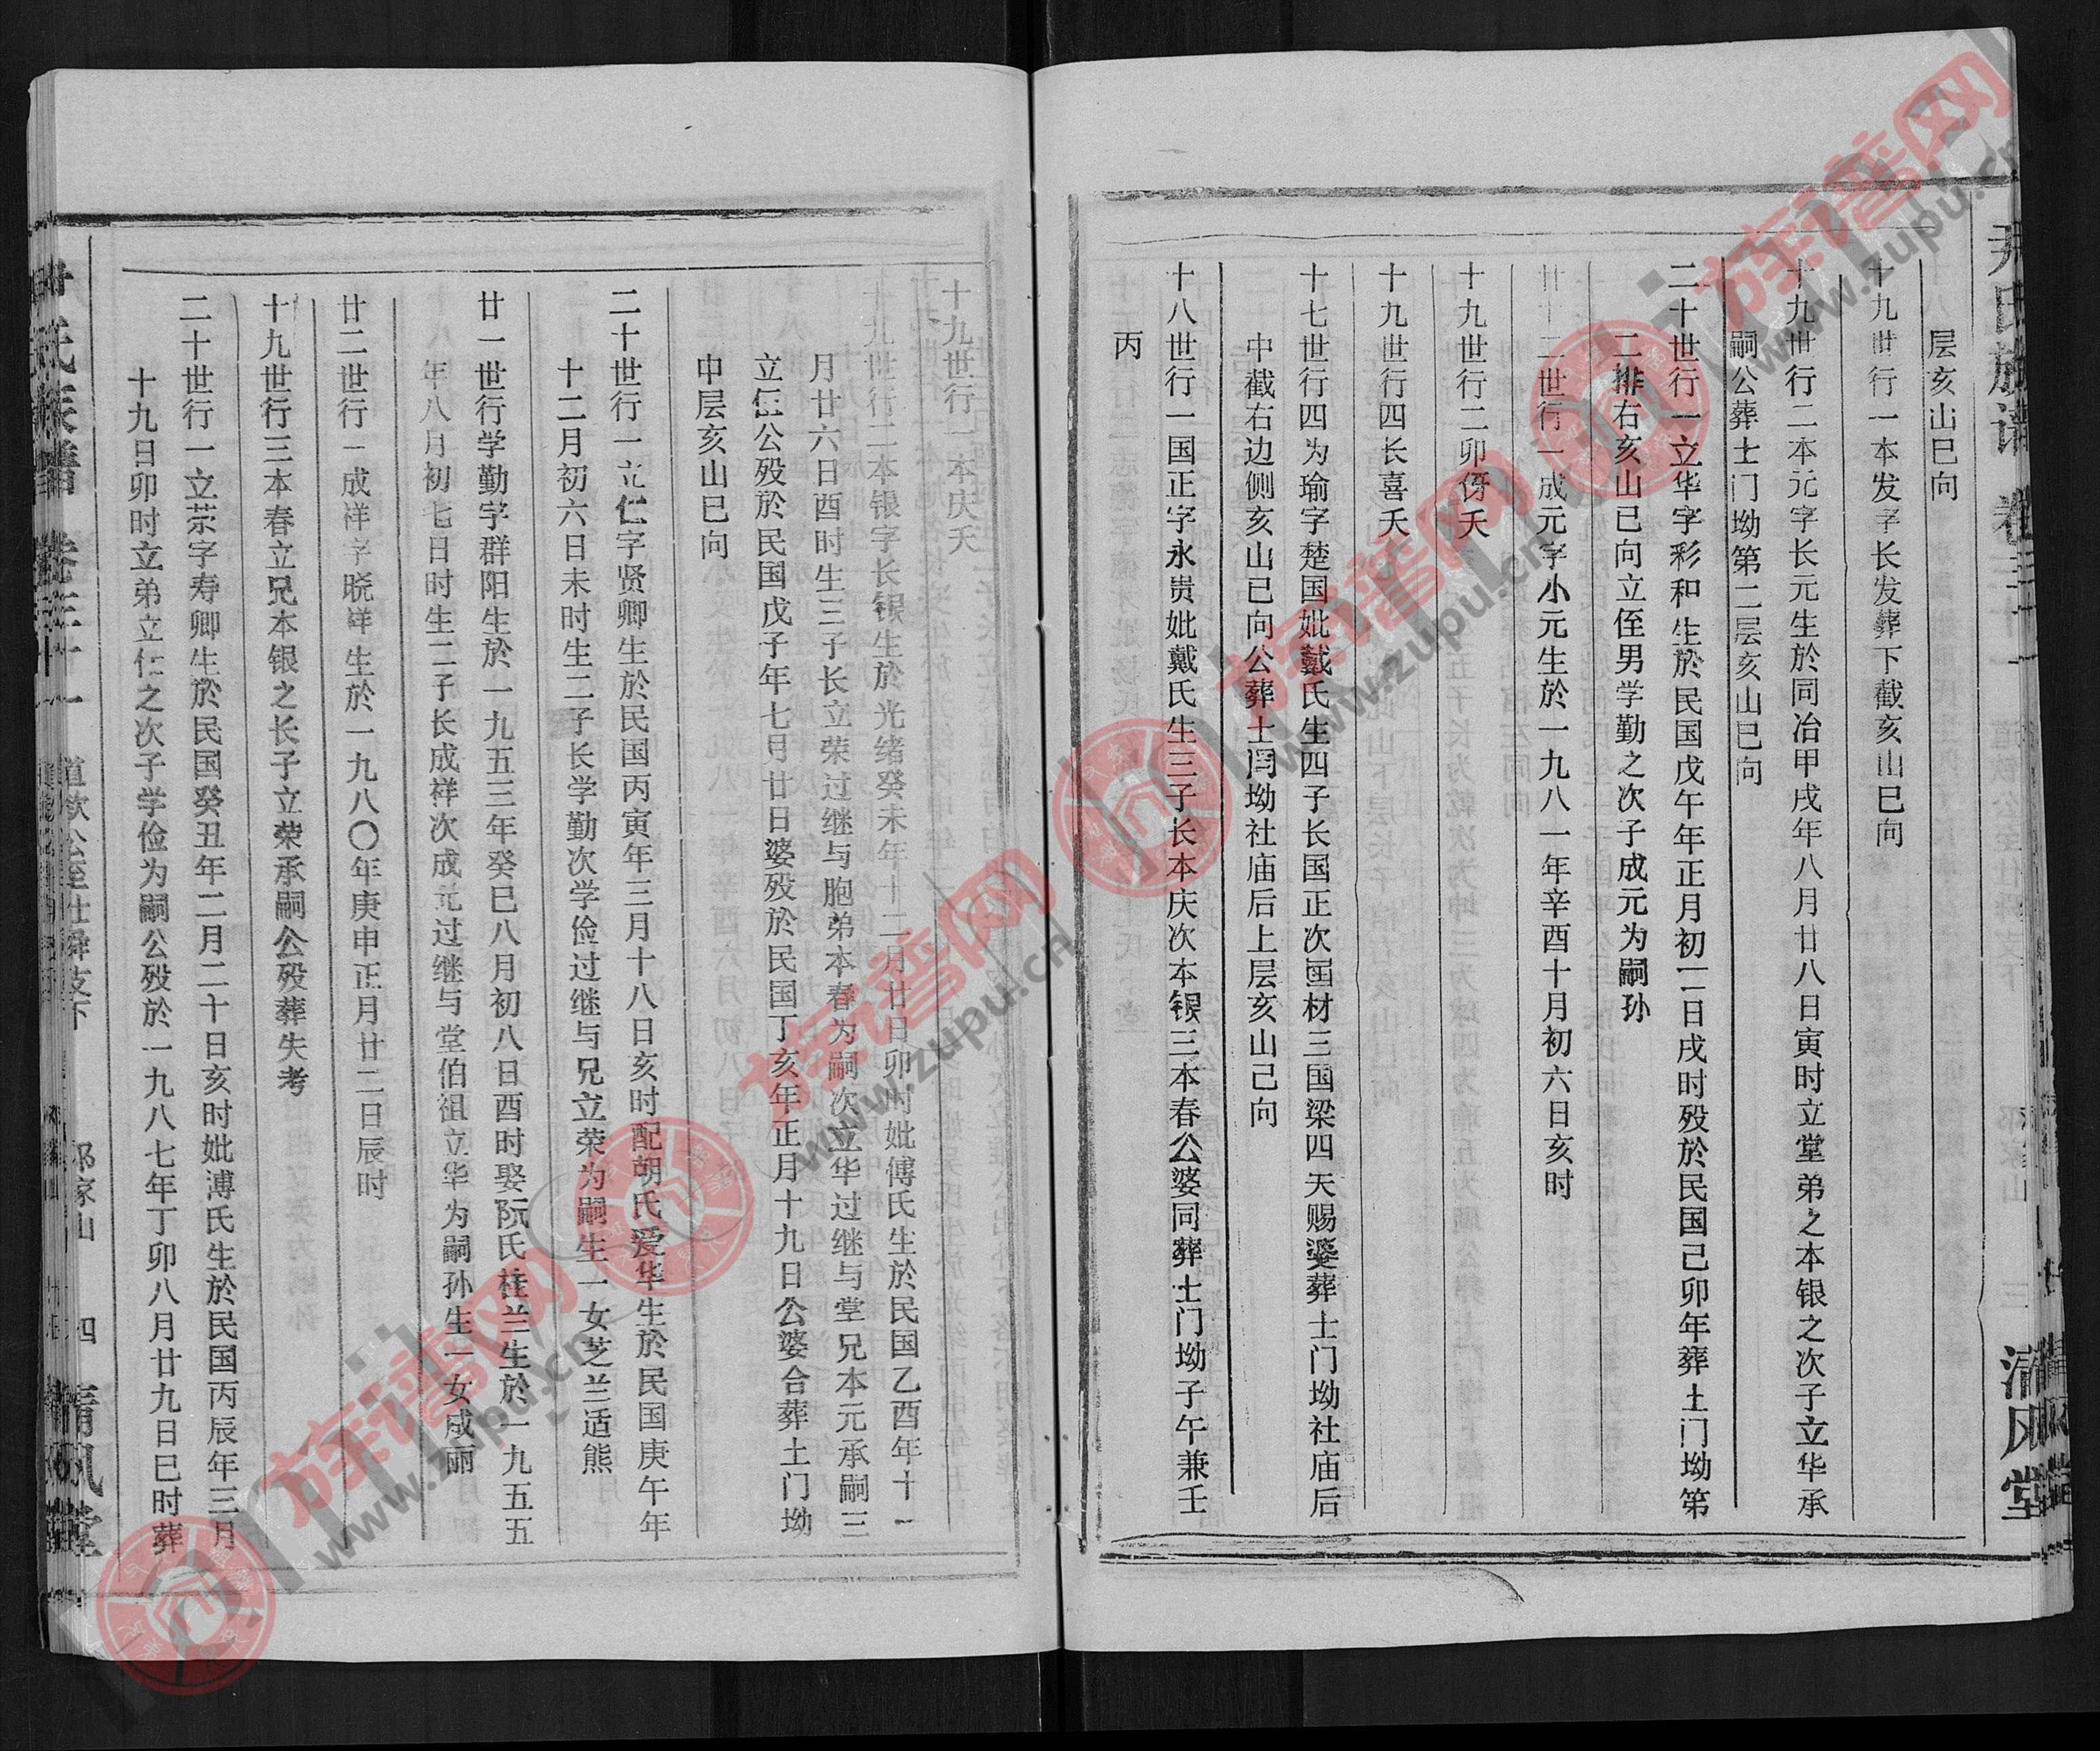 尹氏族谱 卷三十一
清风堂
层亥山巳向
十九世行一本发字长发葬下截亥山巳向
十九世行二本元字长元生於同治甲戌年八月廿八日寅时立堂弟之本银之次子立华承
嗣公葬土门坳第二层亥山巳向
二十世行一立华字彩和生於民国戊午年正月初一日戌时殁於民国己卯年葬土门坳第
二排右亥山巳向立侄男学勤之次子成元为嗣孙
廿二世行一成元字小元生於一九八一年辛酉十月初六日亥时
十九世行二卯伢夭
十九世行四长喜夭
十七世行四为瑜字楚国妣戴氏生四子长国正次国材三国梁四天赐婆葬土门坳社庙后
中截右边侧亥山巳向公葬土门坳社庙后上层亥山己向
十八世行一国正字永贵妣戴氏生三子长本庆次本银三本春公婆同葬土门坳子午兼壬
丙
十九世行一本庆夭
十九世行二本银字长银生於光绪癸未年十二月廿日卯时妣傅氏生於民国乙酉年十一
月廿六日酉时生三子长立荣过继与胞弟本春为嗣次立华过继与堂兄本元承嗣三
立仁公殁於民国戊子年七月廿日婆殁於民国丁亥年正月十九日公婆合葬土门坳
中层亥山巳向
二十世行一立仁字贤卿生於民国丙寅年三月十八日亥时配胡氏爱华生於民国庚午年
十二月初六日未时生二子长学勤次学俭过继与兄立荣为嗣生一女芝兰适熊
廿一世行学勤字群阳生於一九五三年癸巳八月初八日酉时娶阮氏桂兰生於一九五五
年八月初七日时生二子长成祥次成元过继与堂伯祖立华为嗣孙生一女成丽
廿二世行一成祥字晓祥生於一九八〇年庚申正月廿二日辰时
十九世行三本春立兄本银之长子立荣承嗣公殁葬失考
二十世行一立荣字寿卿生於民国癸丑年二月二十日亥时妣溥氏生於民国丙辰年三月
十九日卯时立弟立仁之次子学俭为嗣公殁於一九八七年丁卯八月廿九日巳时葬
氏族谱 卷三十一 道钦公至仕舜支下 邓家山 四 清风堂
族谱网
www.zupu.cn
族谱网
www.zupu.cn
族谱网
www.zupu.cn
族谱网
www.zupu.cn